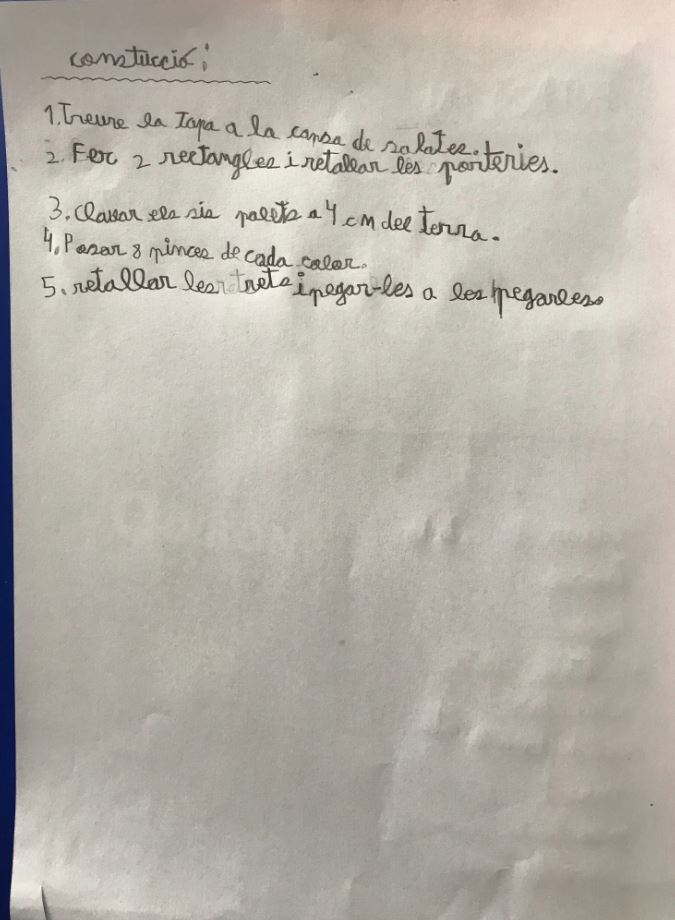 constucció:
1. Treure la Tapa a la capsa de sabates.
2. Fer 2 rectangles i retallar les porteries.
3. Clavar els sis palets a 4 cm del terra.
4. Posar 8 pinces de cada color.
5. retallar les i pegar-les a les